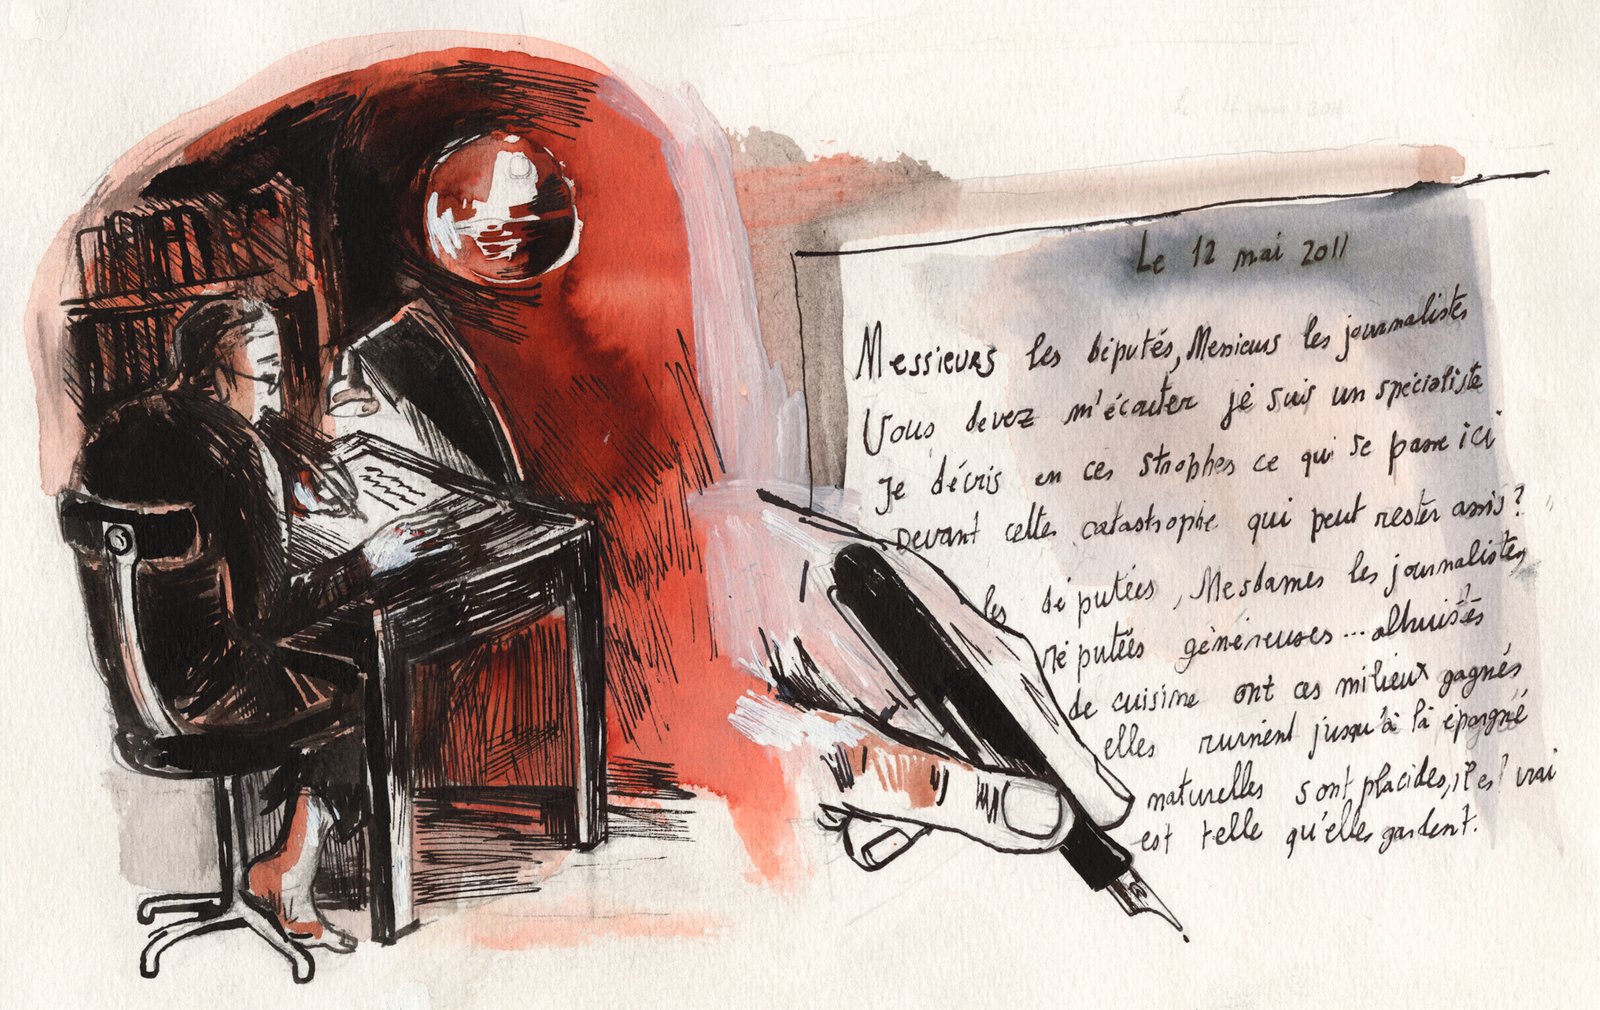 Le 12 mai 2011
Messieurs les députés, Messieurs les journalistes
Vous devez m'écouter je suis un spécialiste
Je décris en ces strophes ce qui se passe ici
Devant cette catastrophe qui peut rester assis?
les députées, Mesdames les journalistes
réputées généreuses... altruistes
de cuisine ont ces milieux gagnés
elles ruinent jusqu'à là épargné
naturelles sont placides, il est vrai
est telle qu'elles gardent.